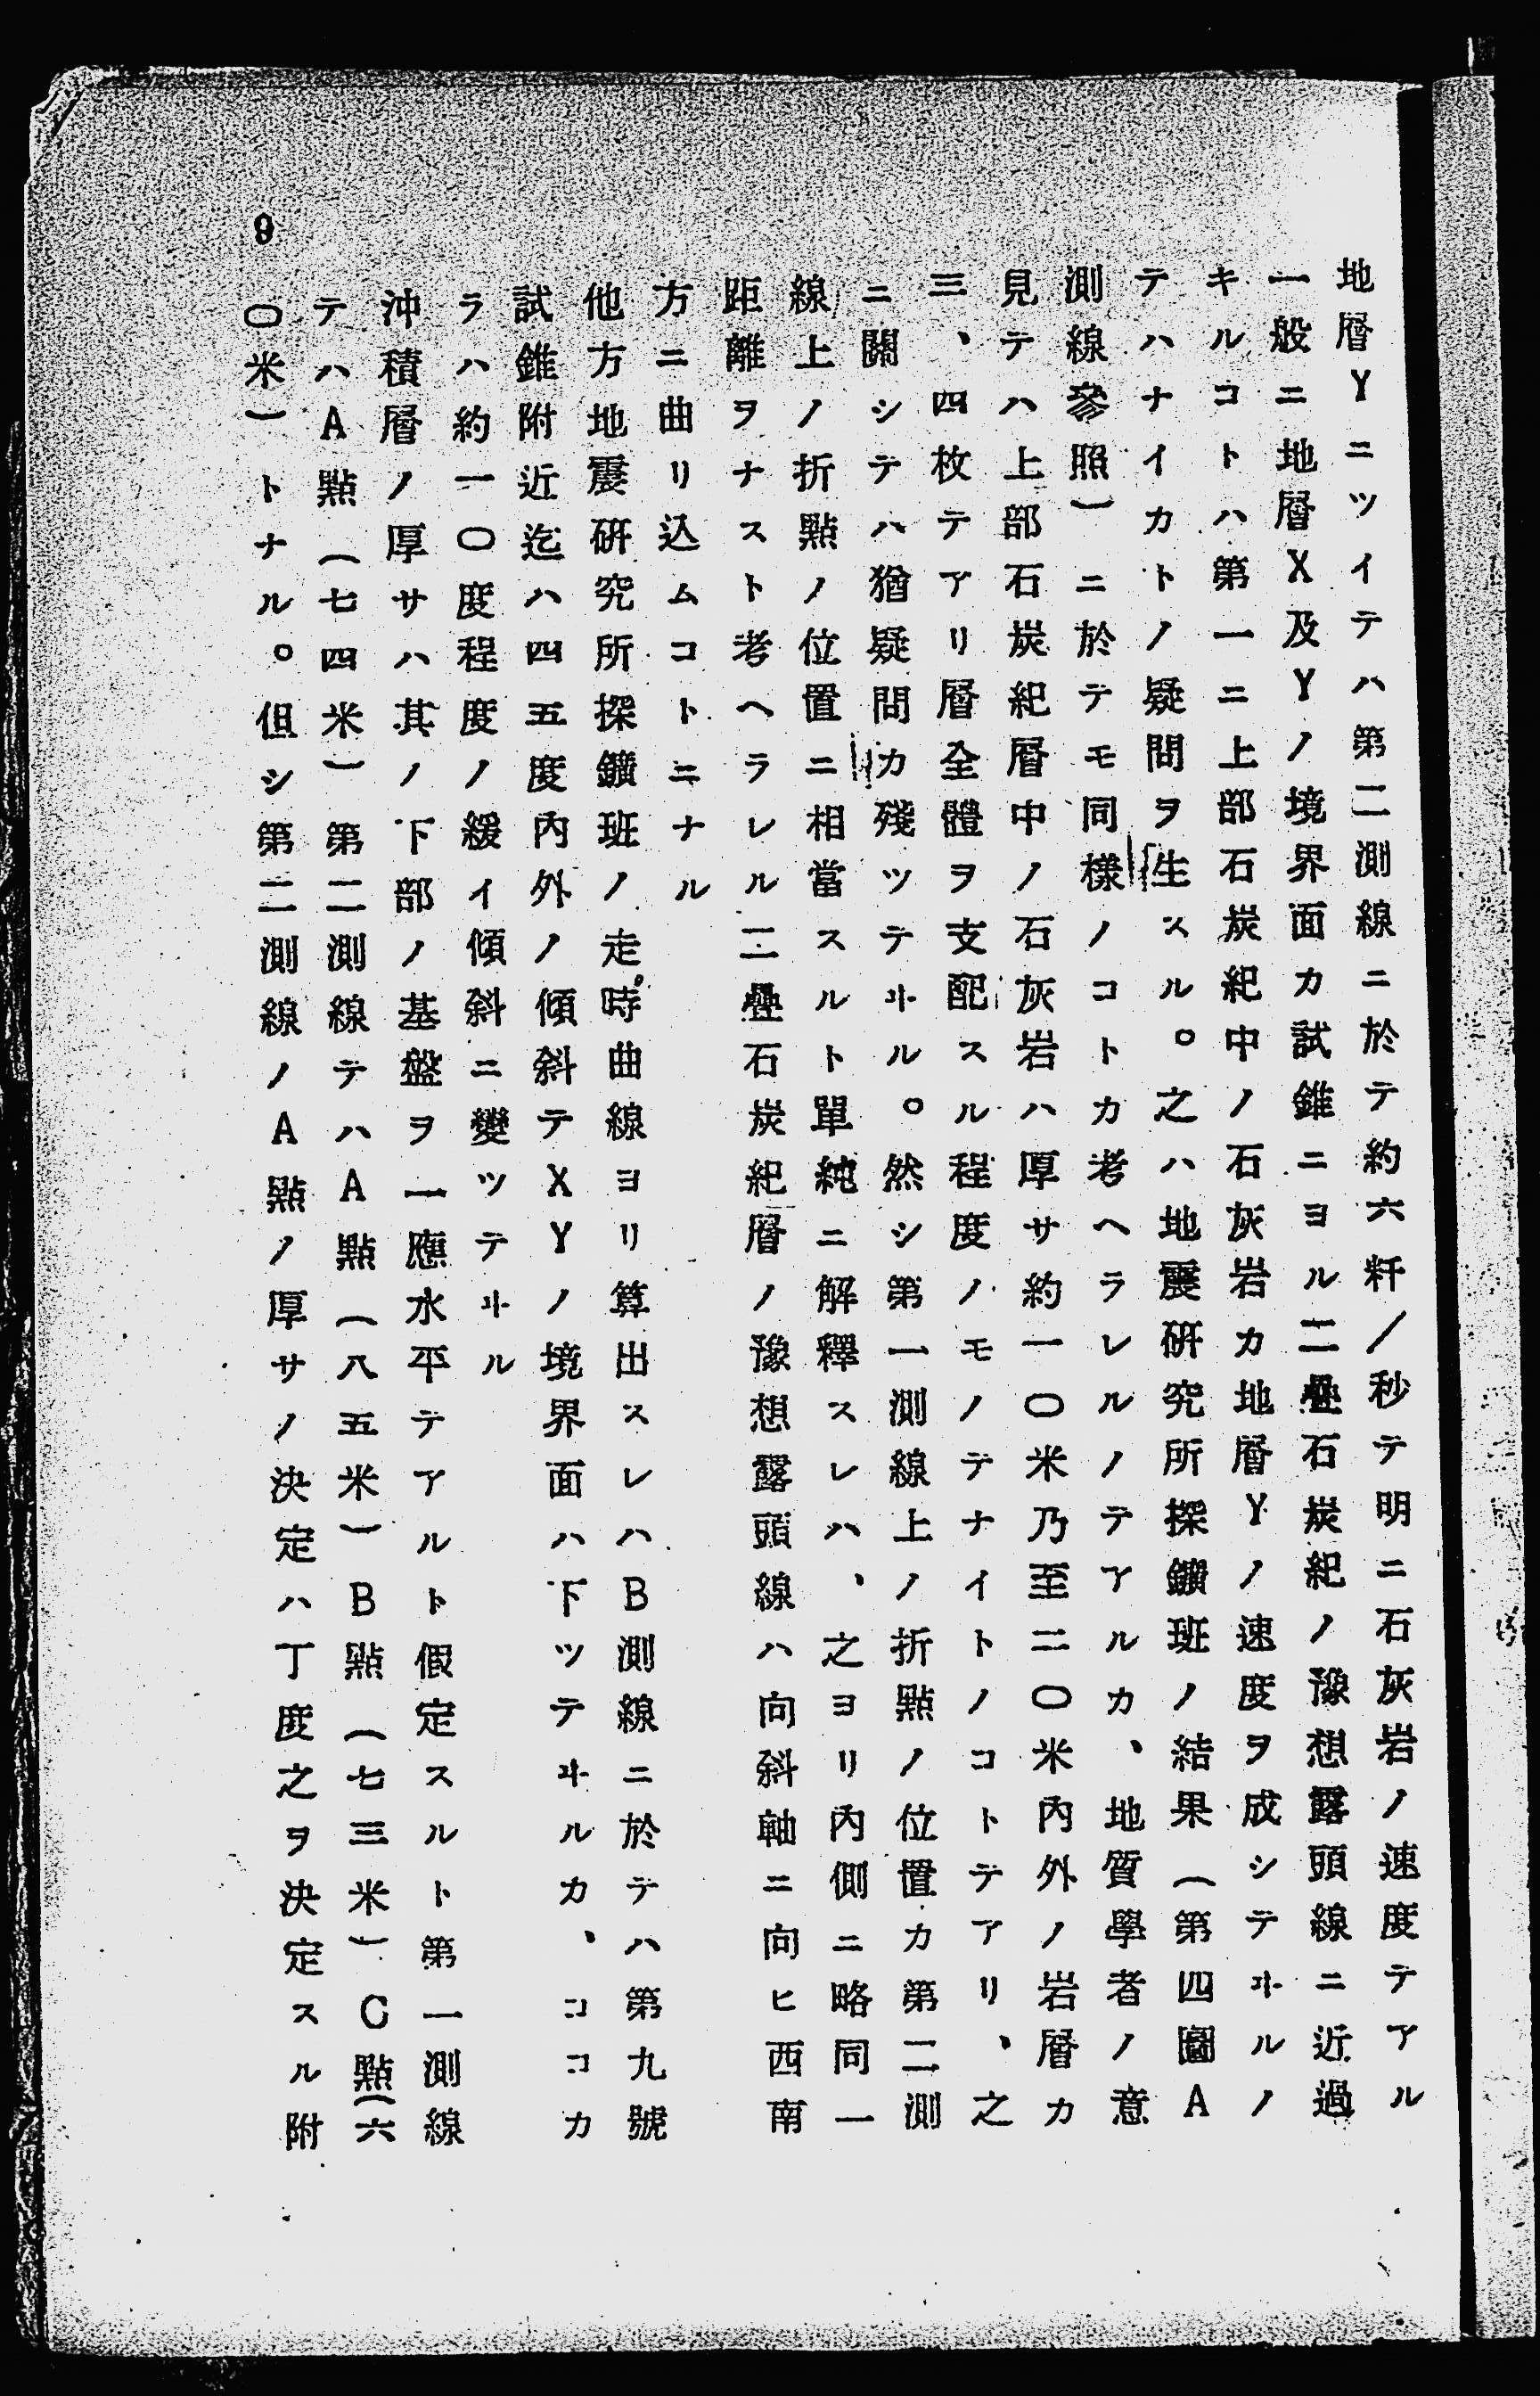 地層Yニツイテハ第二測線ニ於テ約六粁/秒テ明ニ石灰岩ノ速度テアル
一般ニ地層X及Yノ境界面カ試錐ニヨル二疊石炭紀ノ豫想露頭線ニ近過
キルコトハ第一ニ上部石炭紀中ノ石灰岩カ地層Yノ速度ヲ成シテヰルノ
テハナイカトノ疑問ヲ生スル。之ハ地震硏究所探鑛班ノ結果(第四圖A
測線參照)ニ於テモ同樣ノコトカ考ヘラレルノテアルカ、地質學者ノ意
見テハ上部石炭紀層中ノ石灰岩ハ厚サ約一〇米乃至二〇米內外ノ岩層カ
三、四枚テアリ層全體ヲ支配スル程度ノモノテナイトノコトテアリ、之
ニ關シテハ猶疑問カ殘ツテヰル。然シ第一測線上ノ折點ノ位置カ第二測
線上ノ折點ノ位置ニ相當スルト單純ニ解釋スレハ、之ヨリ內側ニ略同一
距離ヲナスト考ヘラレル二疊石炭紀層ノ豫想露頭線ハ向斜軸ニ向ヒ西南
方ニ曲リ込ムコトニナル
他方地震硏究所探鑛班ノ走時曲線ヨリ算出スレハB測線ニ於テハ第九號
試錐附近迄ハ四五度內外ノ傾斜テXYノ境界面ハ下ツテヰルカ、ココカ
ラハ約一〇度程度ノ緩イ傾斜ニ變ツテヰル
沖積層ノ厚サハ其ノ下部ノ基盤ヲ一應水平テアルト假定スルト第一測線
テハA點(七四米)第二測線テハA點(八五米)B點(七三米)C點(六
〇米)トナル。但シ第二測線ノA點ノ厚サノ決定ハ丁度之ヲ決定スル附
9